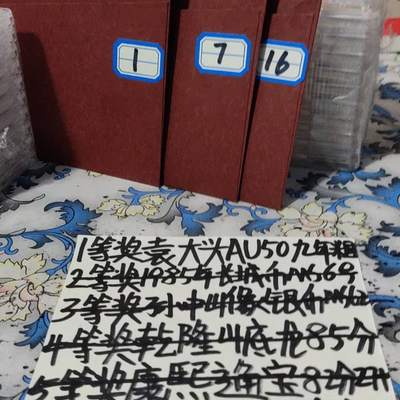 1
7
16
1等奖袁大头AU50九年粗
2等奖1985年长城币
3等奖孙中山像银币MS62
4等奖乾隆山底龙85分
5等奖康熙通宝82分